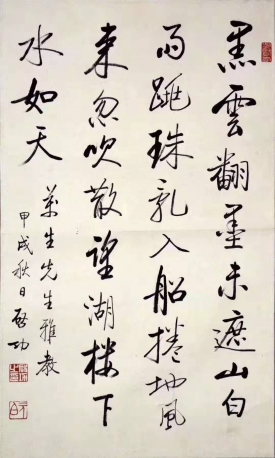 黑雲翻墨未遮山白
雨跳珠乱入船捲地風
来忽吹散望湖楼下
水如天
萬生先生雅教
甲戌秋日啟功